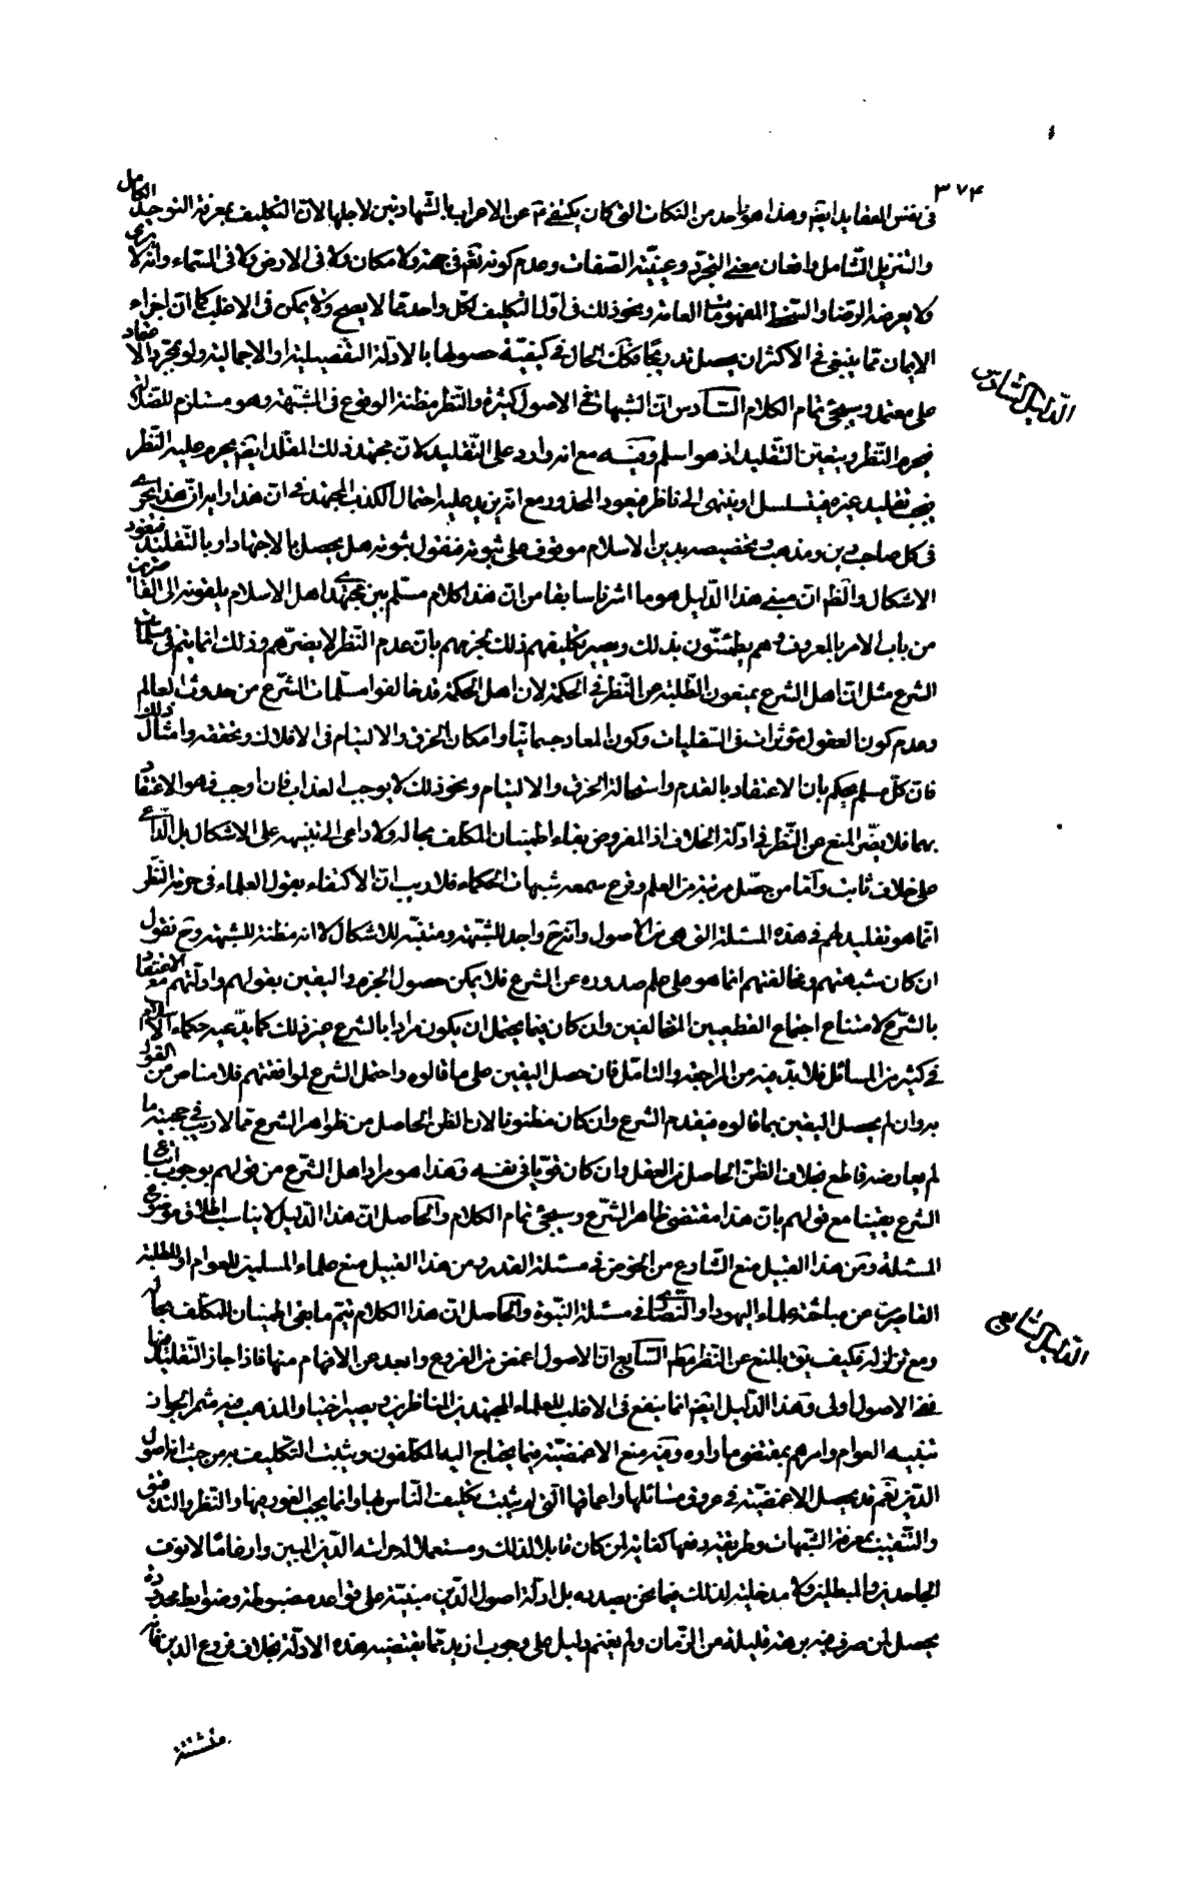 ٣٧۴
فى نفس العقايد ايضا وهذا هو واحد من النكات التى كان يكتفى من الاعراب بالشهادتين لاجلها لان التكليف بمعرفة التوحيد الكامل
والتنزيل الشامل واذعان معنى التجرد وعينية الصفات وعدم كونه تعم فى جهة ولا مكان ولا فى الارض ولا فى السماء وانه لا يرى
ولا يعرضه الرضا والسخط المفهومات العامة ونحو ذلك فى اول التكليف لكل واحد مما لا يصح ولا يمكن فى الاغلب كما ان اجزاء
الايمان مما ينبغى فى الاكثر ان يحصل تدريجا فكك الحال فى كيفية حصولها بالادلة التفصيلية او الاجمالية ولو بمجرد الاعتماد
على معتمد وسيجئ تمام الكلام السادس ان الشبهات فى الاصول كثيرة والنظر مظنة الوقوع فى الشبهة وهو مستلزم للضلالة
فيحرم النظر ويتعين التقليد اذ هو اسلم وفيه مع انه وارد على التقليد لان مجتهد ذلك المقلد ايضا يحرم عليه النظر
فيجب تقليد غيره فيتسلسل او ينتهى الى ناظر فيعود المحذور مع انه يزيد عليه احتمال الكذب المجتهد فى ان هذا رايه ان هذا يجرى
فى كل صاحب دين ومذهب وتخصيصه بدين الاسلام موقوف على ثبوته فنقول ثبوته هل يحصل بالاجتهاد او بالتقليد فيعود
الاشكال والظ ان مبنى هذا الدليل هو ما اشرنا سابقا من ان هذا كلام مسلم بين مجتهدى اهل الاسلام يلقونه الى القاصرين
من باب الامر بالمعروف وهم يطمئنون بذلك ويصير تكليفهم ذلك لجزمهم بان عدم النظر لا يضرهم وذلك انما يتم فى مسلمات
الشرع مثل ان اهل الشرع يمنعون الطلبة عن النظر فى الحكمة لان اهل الحكمة قد خالفوا مسلمات الشرع من حدوث العالم
وعدم كون العقول مؤثرات فى السفليات وكون المعاد جسمانيا وامكان الخرق والالتيام فى الافلاك وتحققه وامثال ذلك
فان كل مسلم يحكم بان الاعتقاد بالقدم واستحالة الخرق والالتيام ونحو ذلك لا يوجب العذاب فان اوجب فهو الاعتقاد
بهما فلا يضر المنع عن النظر فى ادلة الخلاف اذ المفروض بقاء اطمينان المكلف بحاله ولا داعى الى تنبيهه على الاشكال بل الداعى
على خلاف ثابت واما من حصل مرتبة من العلم وقرع سمعه شبهات الحكماء فلا ريب ان الاكتفاء بقول العلماء فى حرمة النظر
انما هو تقليد لهم فى هذه المسئلة التى هى من الاصول وانه ح واجد للشبهة ومتنبه للاشكال لا انه مظنة للشبهة وح نقول
ان كان شبهتهم ومخالفتهم انما هو على علم صدوره عن الشرع فلا يمكن حصول الجزم واليقين بقولهم وادلتهم مع الاعتقاد
بالشرع لامتناع اجتماع القطعيين المتخالفين وان كان فيما يحتمل ان يكون مراد بالشرع غير ذلك كما يدعيه حكماء الاسلام
فى كثير من المسائل فلا بد فيه من المراجعة والتامل فان حصل اليقين على ما قالوه واحتمل الشرع لموافقتهم فلا مناص من القول
به وان لم يحصل اليقين بما قالوه فيقدم الشرع وان كان مظنونا لان الظن الحاصل من ظواهر الشرع مما لا ريب فى حجيته ما
لم يعارضه قاطع بخلاف الظن الحاصل من العقل وان كان قويا فى نفسه وهذا هو مراد اهل الشرع من قولهم بوجوب اتباع
الشرع يقينا مع قولهم بان هذا مقتضى ظاهر الشرع وسيجئ تمام الكلام والحاصل ان هذا الدليل لا يناسب اطلاق موضوع
المسئلة ومن هذا القبيل منع الشارع من الخوض فى مسئلة القدر ومن هذا القبيل منع علماء المسلمين للعوام او للطلبة
القاصرين عن مباحثة علماء اليهود او النصارى فى مسئلة النبوة والحاصل ان هذا الكلام يتم ما بقى اطمينان المكلف بحاله
ومع تزلزله فكيف يتق بالمنع عن النظر السابع ان الاصول اغمض من الفروع وابعد عن الافهام منها فاذا جاز التقليد فيها
ففى الاصول اولى وهذا الدليل ايضا انما ينفع فى الاغلب للعلماء المجتهدين المناظرين ويصير اختيار المذهب فيه مثمر الجواز
تنبيه العوام وامرهم بمقتضى ما راوه وفيه منع الاغمضية فيما يحتاج اليه المكلفون ويثبت التكليف به من حيث انها اصول
الدين نعم قد يحصل الاغمضية فى عروق مسائلها واعماقها التى لم يثبت تكليف الناس بها وانما يجب الغور فيها والنظر والتدقيق
والتفتيش بمعرفة الشبهات وطريقة دفعها كفاية لمن كان قابلا لذلك ومستعدا لحراسة الدين المبين وارغاما لانوف
الجاحدين والمبطلين ولا مدخلية لذلك فيما نحن بصدده بل ادلة اصول الدين مبنية على قواعد مضبوطة وضوابط محدودة
يحصل لمن صرف فيه برهة قليلة من الزمان ولم يقم دليل على وجوب ازيد مما يقتضيه هذه الادلة بخلاف فروع الدين فانه
الدليل السادس
الدليل السابع
منشتتة